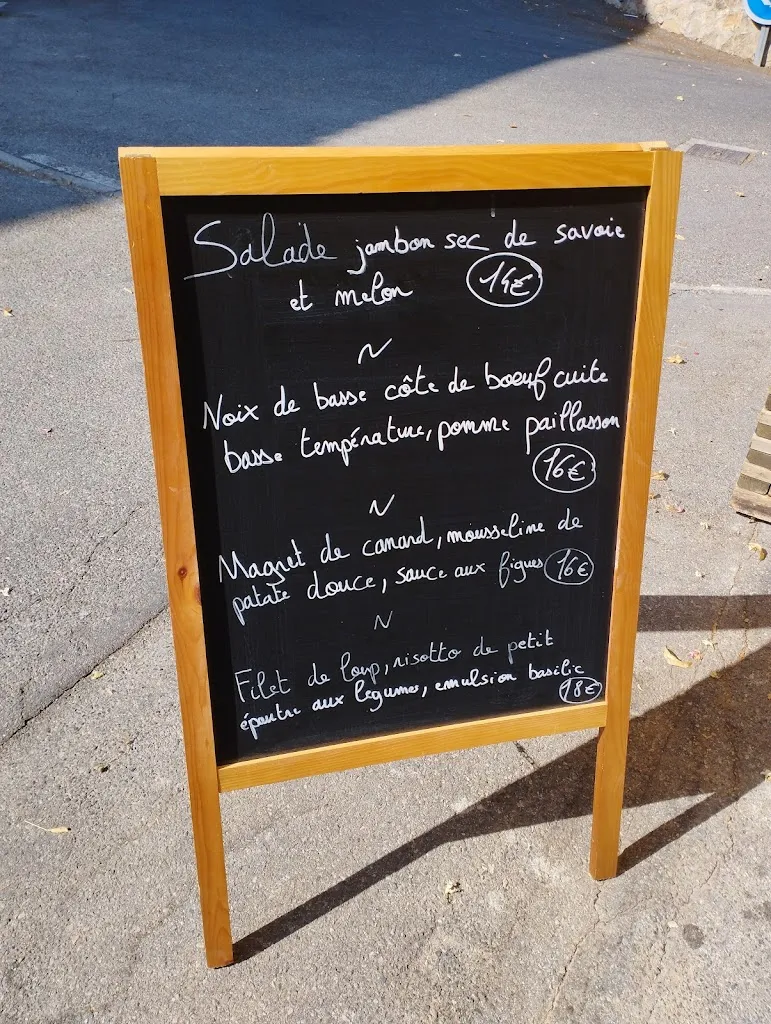 Salade jambon sec de savoie
et melon 14€
~
Noix de basse côte de boeuf cuite
basse température, pomme paillasson
16€
~
Magret de canard, mousseline de
patate douce, sauce aux figues 16€
~
Filet de loup, risotto de petit
épeautre aux légumes, emulsion basilic
18€